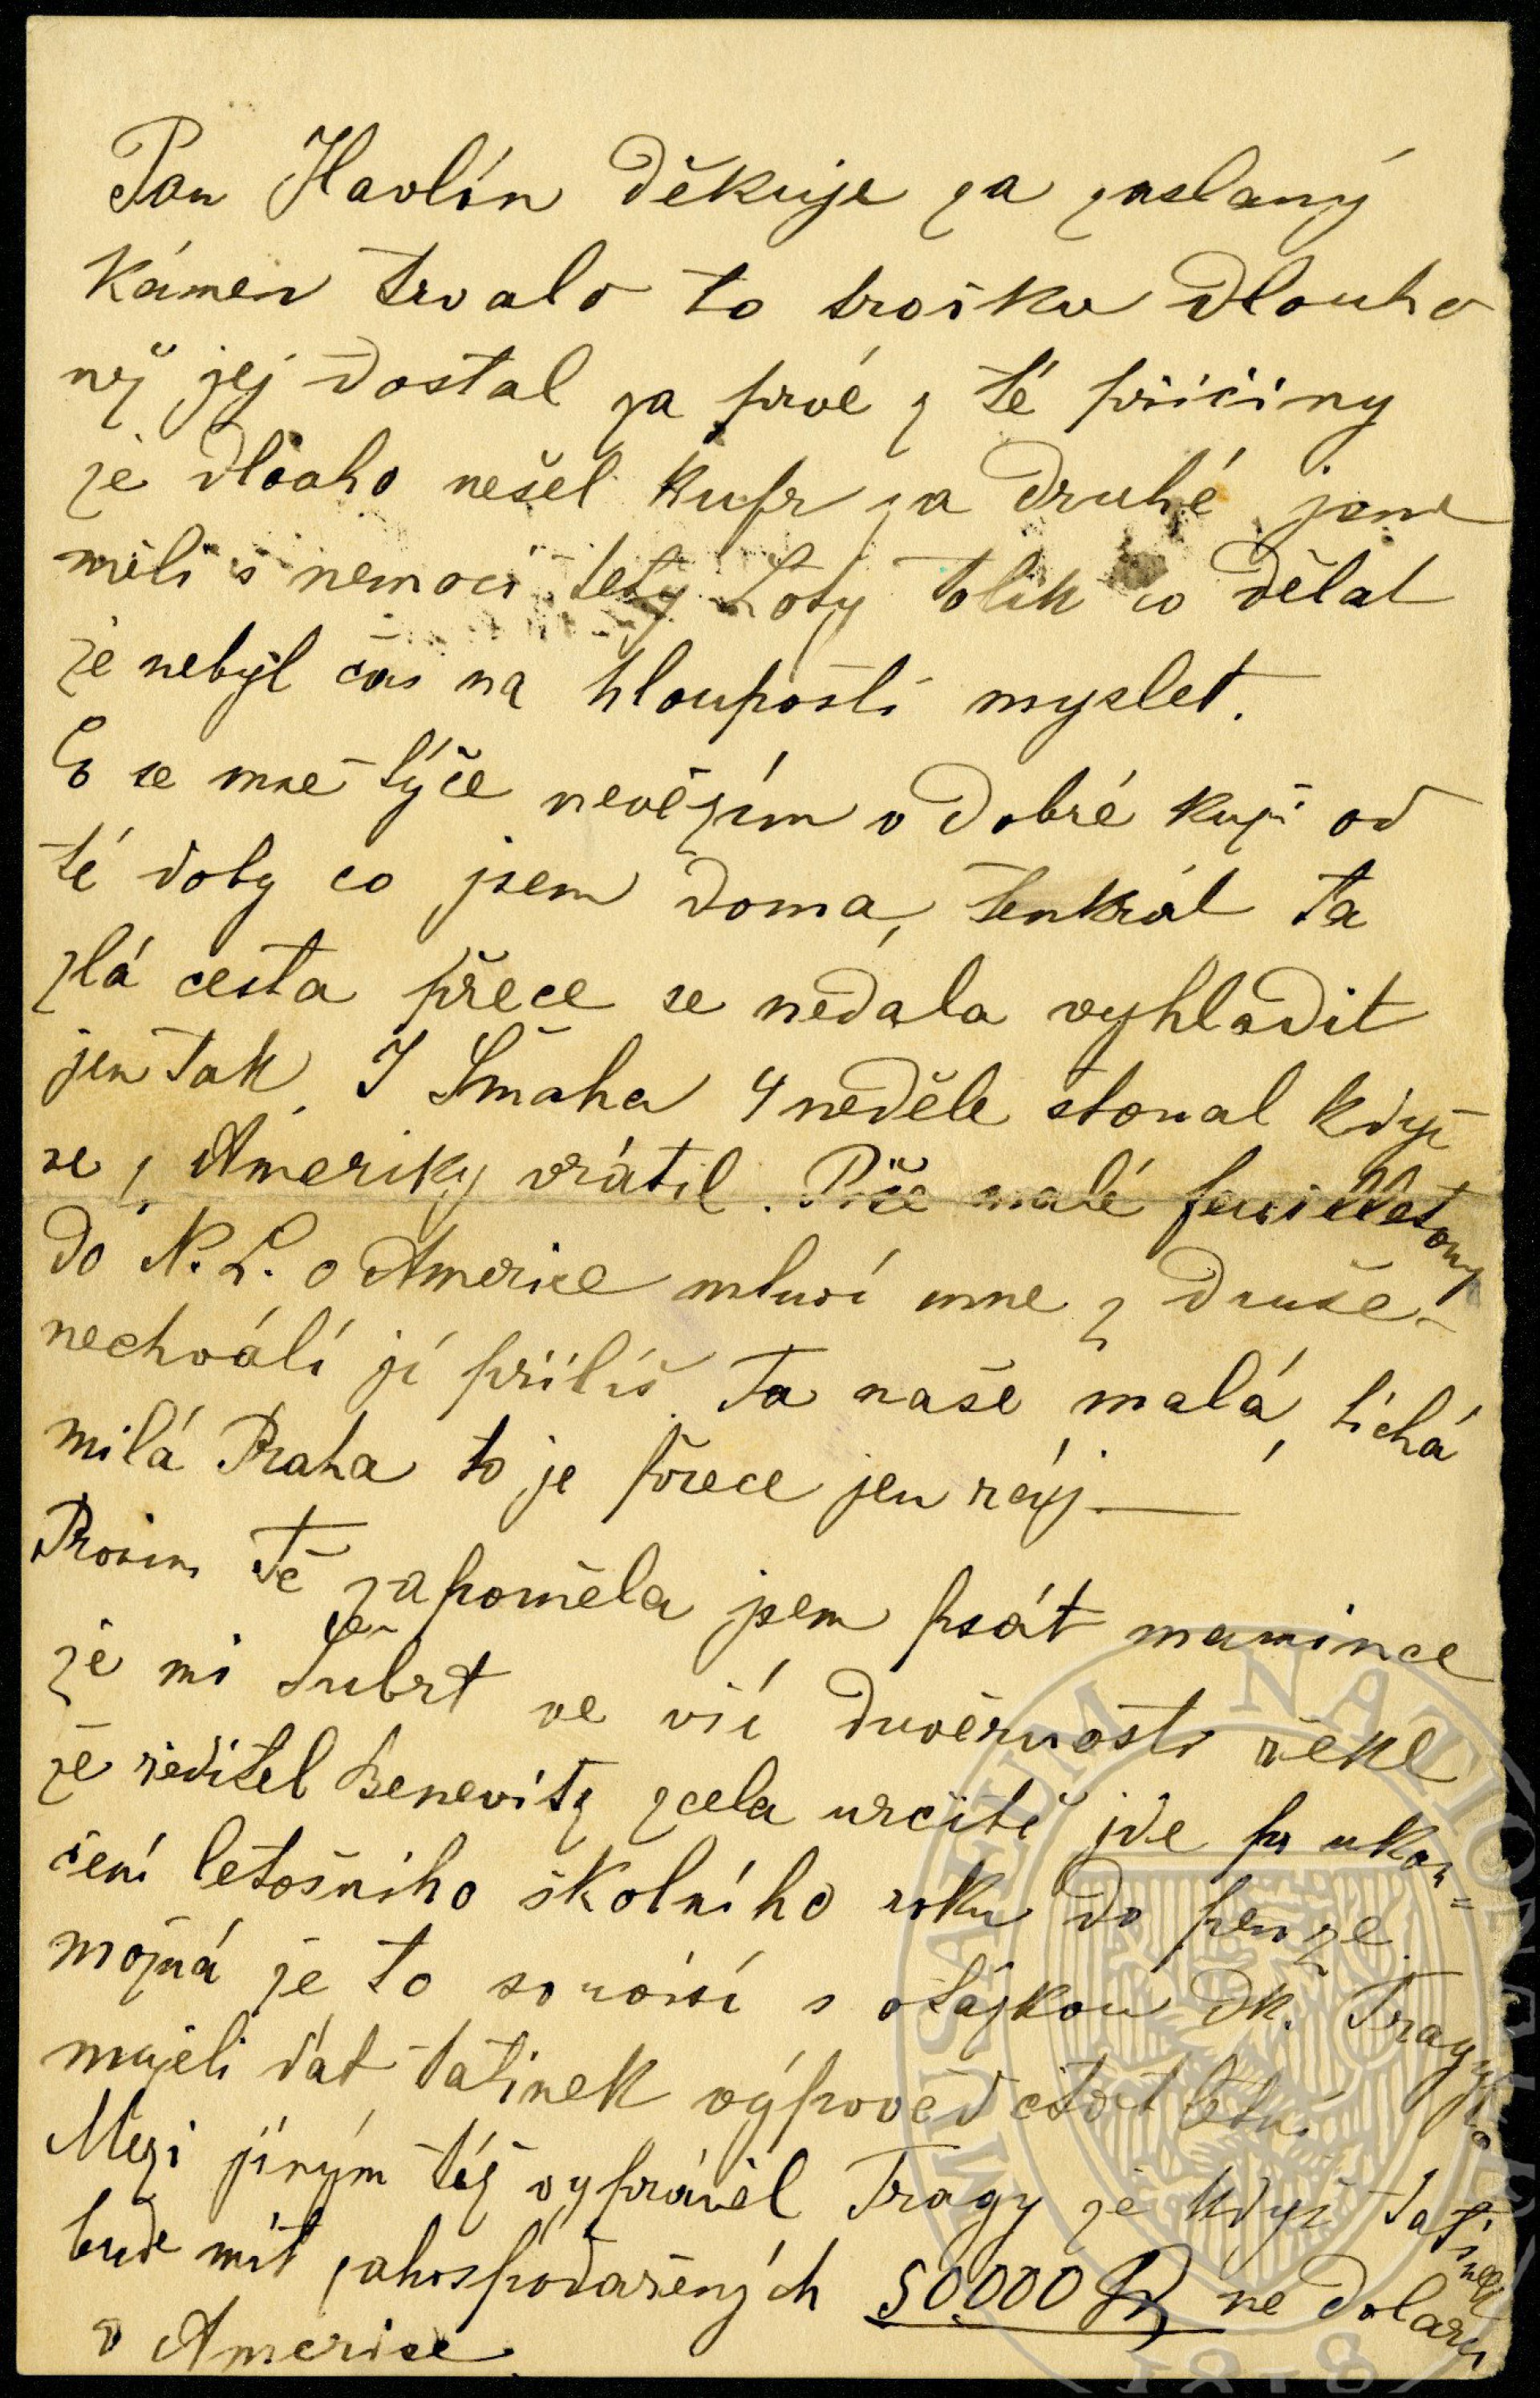 Pan Havlín děkuje za zaslaný
kámen trvalo to trošku dlouho
než jej dostal za prvé z té příčiny
že dloaho nešel kufr za druhé jsme
měli s nemocí tety Loty tolik co dělat
že nebyl čas na hlouposti myslet.
Co se mne týče nevězím v dobré kuži od
té doby co jsem doma, tenkrát ta
zlá cesta přece se nedala vyhladit
jen tak. I Šmaha 4 neděle stonal když
se z Ameriky vrátil. Píše malé feuilletony
do N. L. o Americe mluví mne z duše -
nechválí jí příliš. Ta naše malá, tichá
milá Praha to je přece jen ráj —
Prosim Tě zapoměla jsem psát mamince
že mi Šubrt ve vší duvěrnosti řekl
že ředitel Benevitz zcela určitě jde po ukon=
čení letošního školního roku do penze.
možná že to souvisí s otázkou dr. Tragyho
máli dát tatinek výpověď
Mezi jiným též vyprávěl Tragy že když tatínek
bude mít zahospodařených 50000 Zl ne dolaru
v Americe.
MUSAEUM NATIONALE
1818